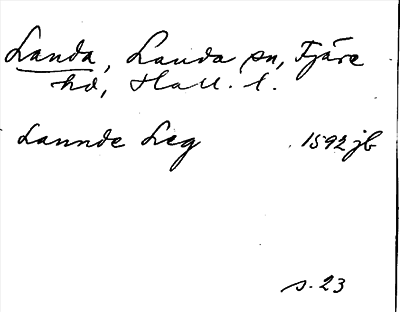 Landa, Landa sn, Fjäre
hd, Hall. l.
Lannde Leg 1592 jb
s. 23